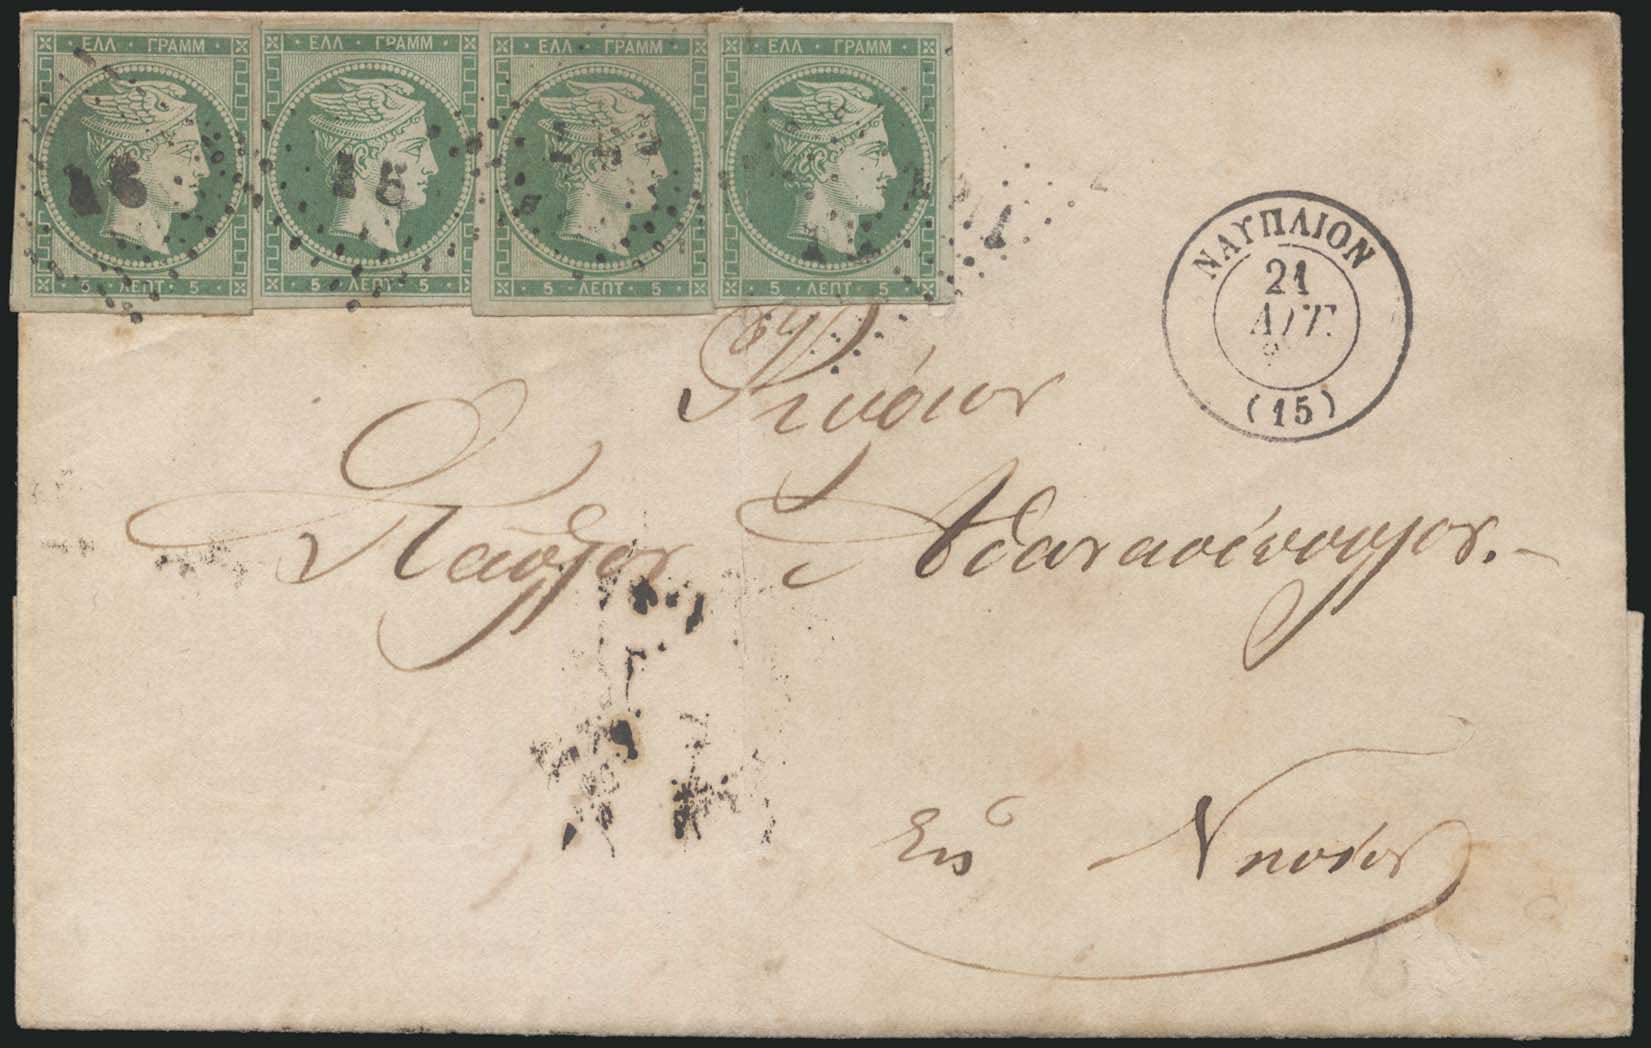 ΕΛΛ ΓΡΑΜΜ ΕΛΛ ΓΡΑΜΜ ΕΛΛ ΓΡΑΜΜ ΕΛΛ ΓΡΑΜΜ
15 15
5 ΛΕΠΤ 5 5 ΛΕΠΤ 5 5 ΛΕΠΤ 5 5 ΛΕΠΤ 5
ΝΑΥΠΛΙΟΝ
21
ΑΥΓ.
(15)
Κύριον
Παῦλον Ἀθανασόπουλον.
Εἰς